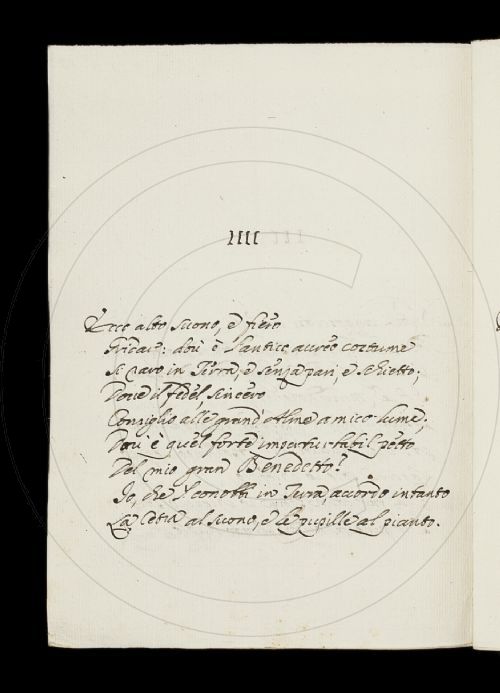 IIII
Ecco alto suono, è fiero
Gridar: dou' è l'antico aureo costume
Si raro in Terra, è senza pari, è schietto;
Doue il fedel, sincero
Consiglio alle grand' Alme amico lume;
Dou' è quel forte imperturbabil petto
Del mio gran Benedetto?
Io, che l'conobbi in Terra, accordo intanto
La Cetra al suono, è le pupille al pianto.